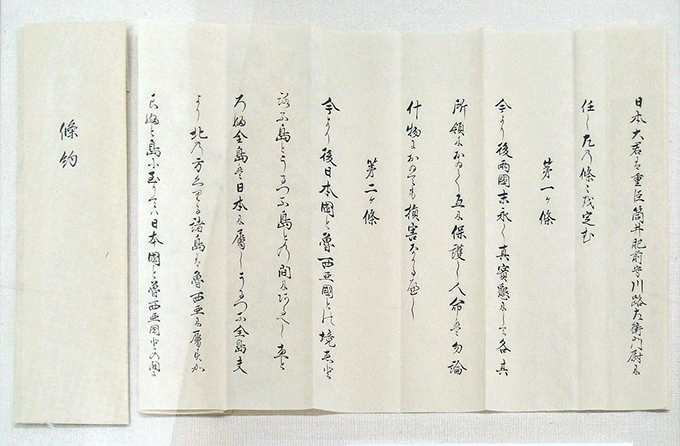 日本大君は重臣筒井肥前守川路左衛門尉に
任し左の條々を定む
第一ヶ條
今より後兩國末永く真實懇にして各其
所領におゐて互に保護し人命は勿論
什物におゐても損害なかるへし
第二ヶ條
今より後日本國と魯西亜國との境ヱト
ロフ島とウルップ島との間にあるへしヱト
ロフ全島は日本に属しウルップ全島夫
より北の方クリル諸島は魯西亜に属すカ
ラフト島に至りては日本國と魯西亜國との間に
條約